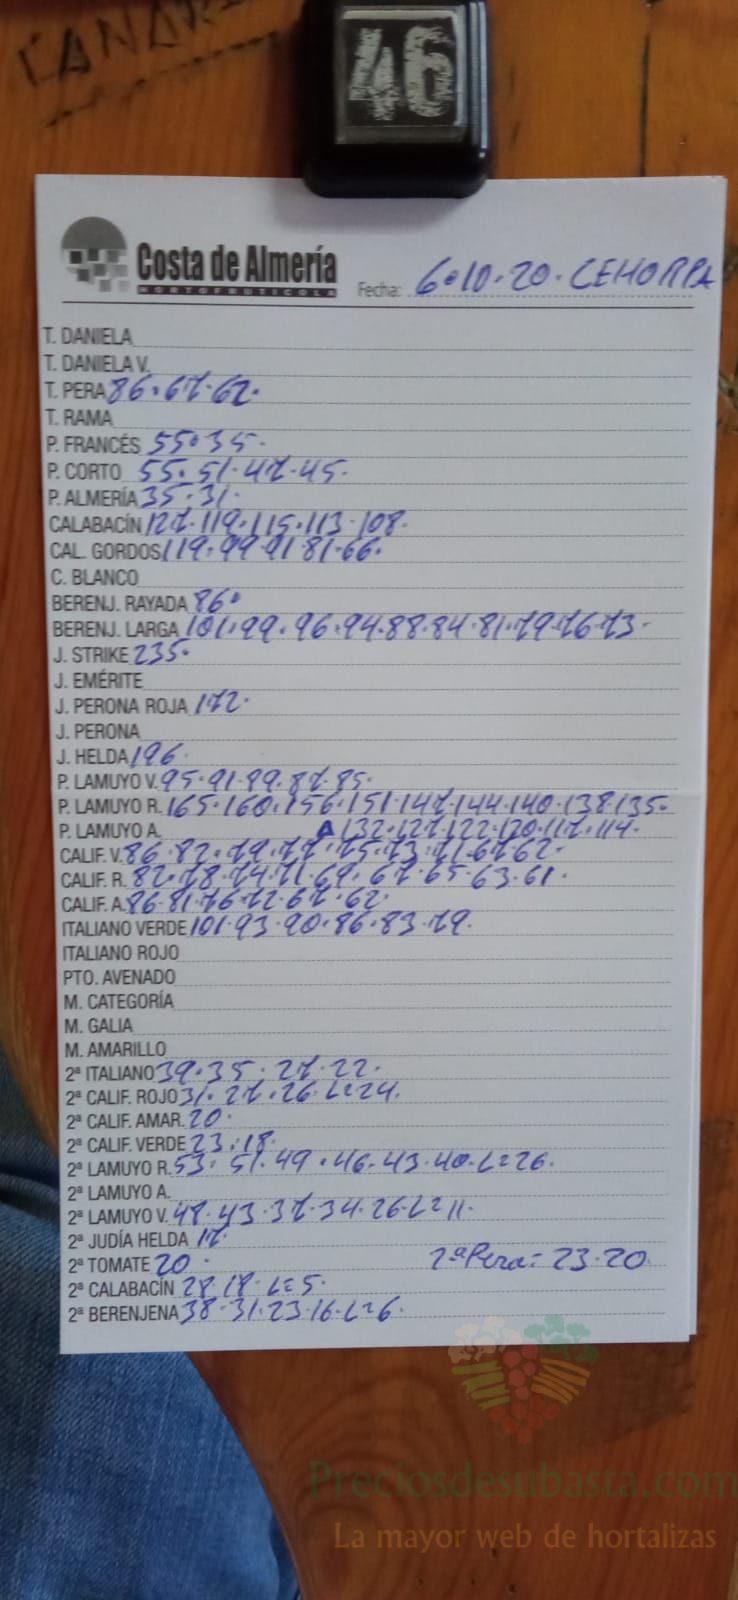 CANAR
46
Costa de Almería
HORTOFRUTICOLA
Fecha: 6.10.20. CEHORPA
T. DANIELA
T. DANIELA V.
T. PERA 86.67.62.
T. RAMA
P. FRANCÉS 55.35.
P. CORTO 55.51.47.45.
P. ALMERÍA 35.31.
CALABACÍN 127.119.115.113.108.
CAL. GORDOS 119.99.91.81.66.
C. BLANCO
BERENJ. RAYADA 86.
BERENJ. LARGA 101.99.96.94.88.84.81.79.76.73.
J. STRIKE 235.
J. EMÉRITE
J. PERONA ROJA 172.
J. PERONA
J. HELDA 196.
P. LAMUYO V. 95.91.89.87.85.
P. LAMUYO R. 165.160.156.151.147.144.140.138.135.
P. LAMUYO A. 132.127.122.120.117.114.
CALIF. V. 86.82.79.77.75.73.71.67.62.
CALIF. R. 82.78.74.71.69.67.65.63.61.
CALIF. A. 86.81.76.72.67.62.
ITALIANO VERDE 101.93.90.86.83.79.
ITALIANO ROJO
PTO. AVENADO
M. CATEGORÍA
M. GALIA
M. AMARILLO
2ª ITALIANO 39.35.27.22.
2ª CALIF. ROJO 31.27.26.L=24.
2ª CALIF. AMAR. 20.
2ª CALIF. VERDE 23.18.
2ª LAMUYO R. 53.51.49.46.43.40.L=26.
2ª LAMUYO A.
2ª LAMUYO V. 48.43.37.34.26.L=11.
2ª JUDÍA HELDA 17.
2ª TOMATE 20. 2ª Pera: 23.20.
2ª CALABACÍN 28.18.L=5.
2ª BERENJENA 38.31.23.16.L=6.
Preciosdesubasta.com
La mayor web de hortalizas